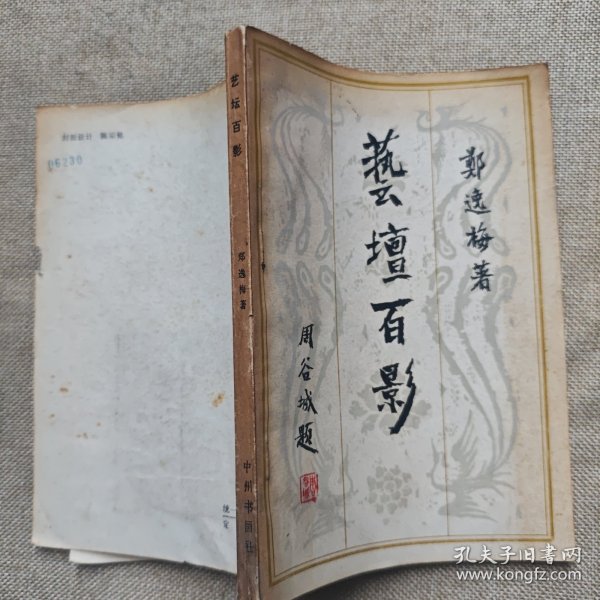 藝壇百影
鄭逸梅著
周谷城题
艺坛百影
郑逸梅著
中州书画社
封面设计
06230
统一定
孔夫子旧书网
www.kongfz.com